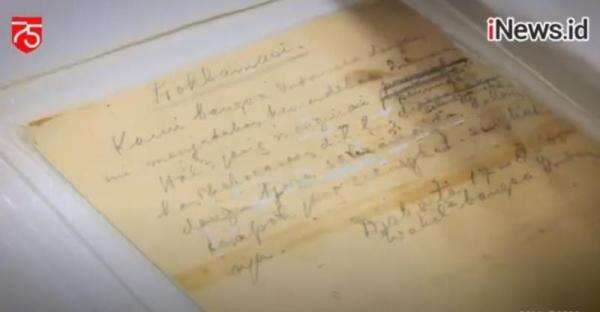 75
iNews.id
Proklamasi.
Kami bangsa Indonesia dengan
ini menjatakan kemerdekaan
Hal2 jang mengenai
d.l.l.
dengan tjara saksama
tempoh jang sesingkat-singkat
nja.
Djakarta, 17 - 8
Wakil2 bangsa Indonesia